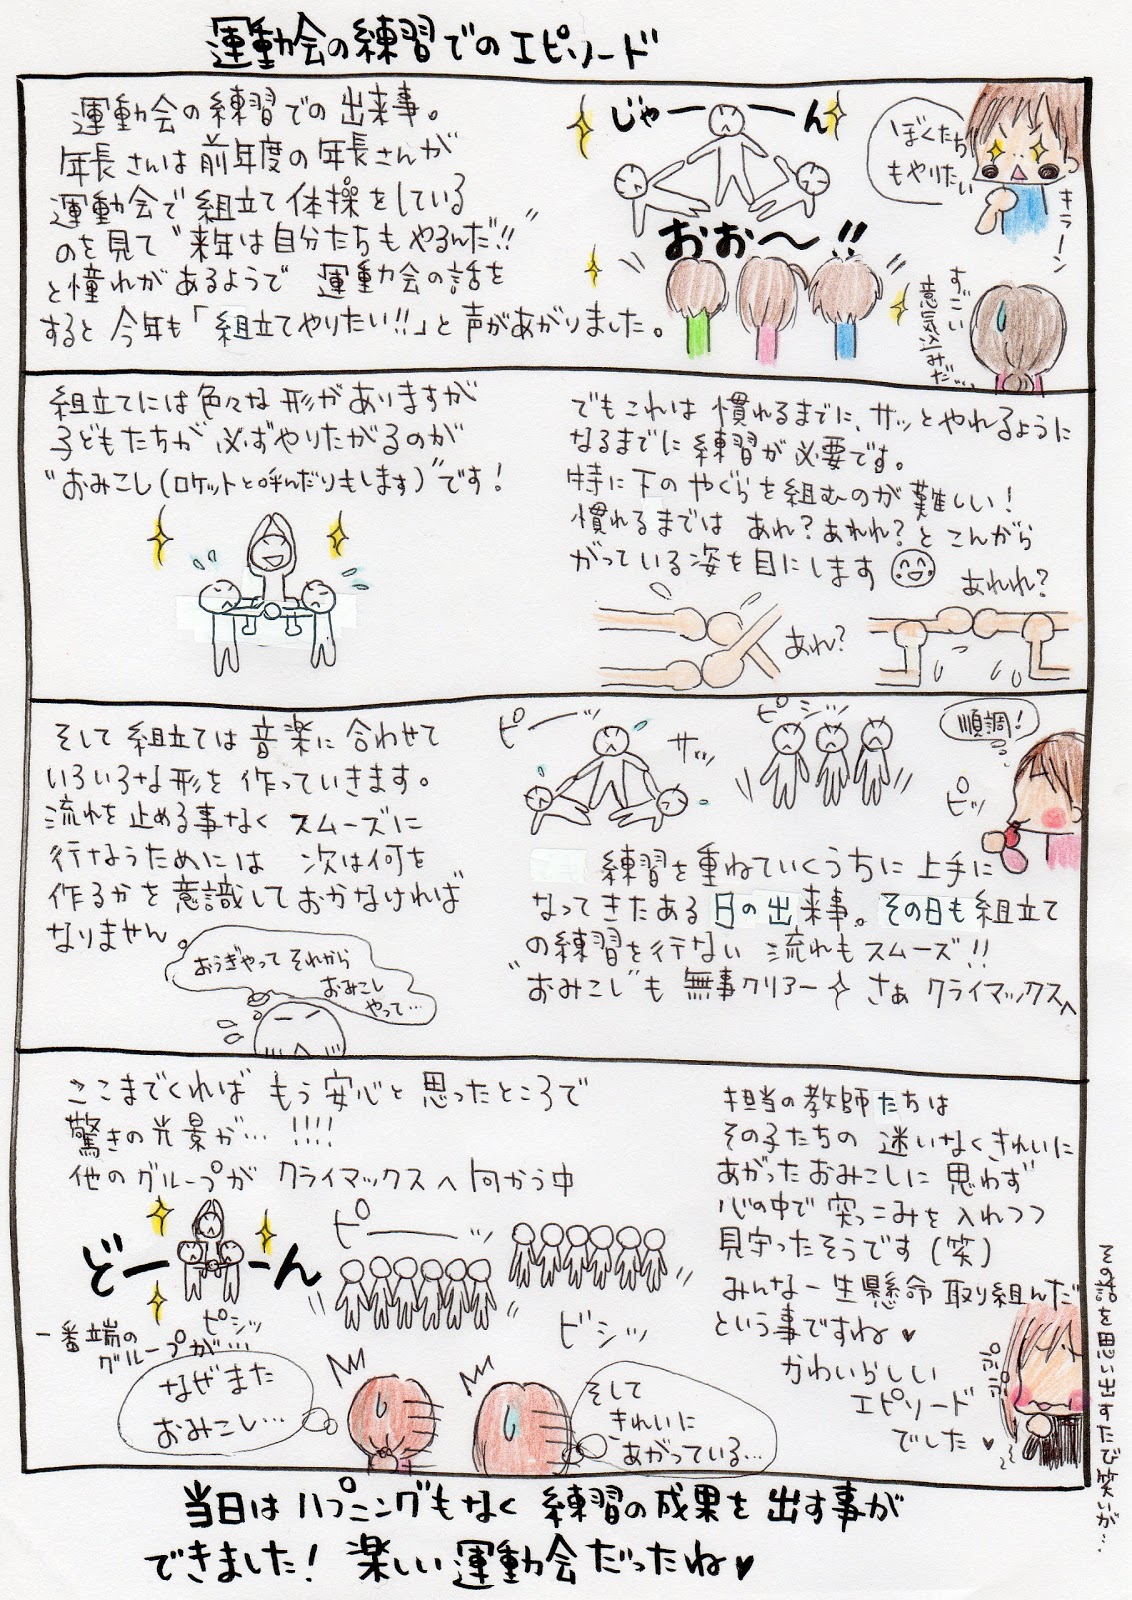 運動会の練習でのエピソード
運動会の練習での出来事。
年長さんは前年度の年長さんが
運動会で組立て体操をしている
のを見て"来年は自分たちもやるんだ!!"
と憧れがあるようで 運動会の話を
すると今年も「組立てやりたい!!」と声があがりました。
じゃーーん
おぉ〜!!
ぼくたち
もやりたい
キラーン
すごい
意気込みだ…
組立てには色々な形がありますが
子どもたちが必ずやりたがるのが
"おみこし(ロケットと呼んだりもします)"です!
でもこれは慣れるまでに、サッとやれるように
なるまでに練習が必要です。
特に下のやぐらを組むのが難しい!
慣れるまでは あれ?あれれ?とこんがら
がっている姿を目にします
あれ?
あれれ?
そして組立ては音楽に合わせて
いろいろな形を作っていきます。
流れを止める事なくスムーズに
行なうためには 次は何を
作るかを意識しておかなければ
なりません。
おうぎやって それから
おみこし
やって…
ピーッ
サッ
ピシッ
順調!
ピッ
練習を重ねていくうちに上手に
なってきたある日の出来事。その日も組立て
の練習を行ない 流れもスムーズ!!
"おみこし"も 無事クリアー さぁ クライマックスへ
ここまでくれば もう安心と思ったところで
驚きの光景が… !!!!
他のグループが クライマックスへ向かう中
どーーん
ピシッ
一番端の
グループが…
ピーーッ
ビシッ
なぜまた
おみこし…
そして
きれいに
あがっている…
担当の教師たちは
その子たちの 迷いなくきれいに
あがったおみこしに 思わず
心の中で突っこみを入れつつ
見守ったそうです(笑)
みんな一生懸命取り組んだ
という事ですね♥
かわいらしい
エピソード
でした♥
ぷぷぷ
その話を思い出すたび笑いが…
当日はハプニングもなく 練習の成果を出す事が
できました! 楽しい運動会だったね♥